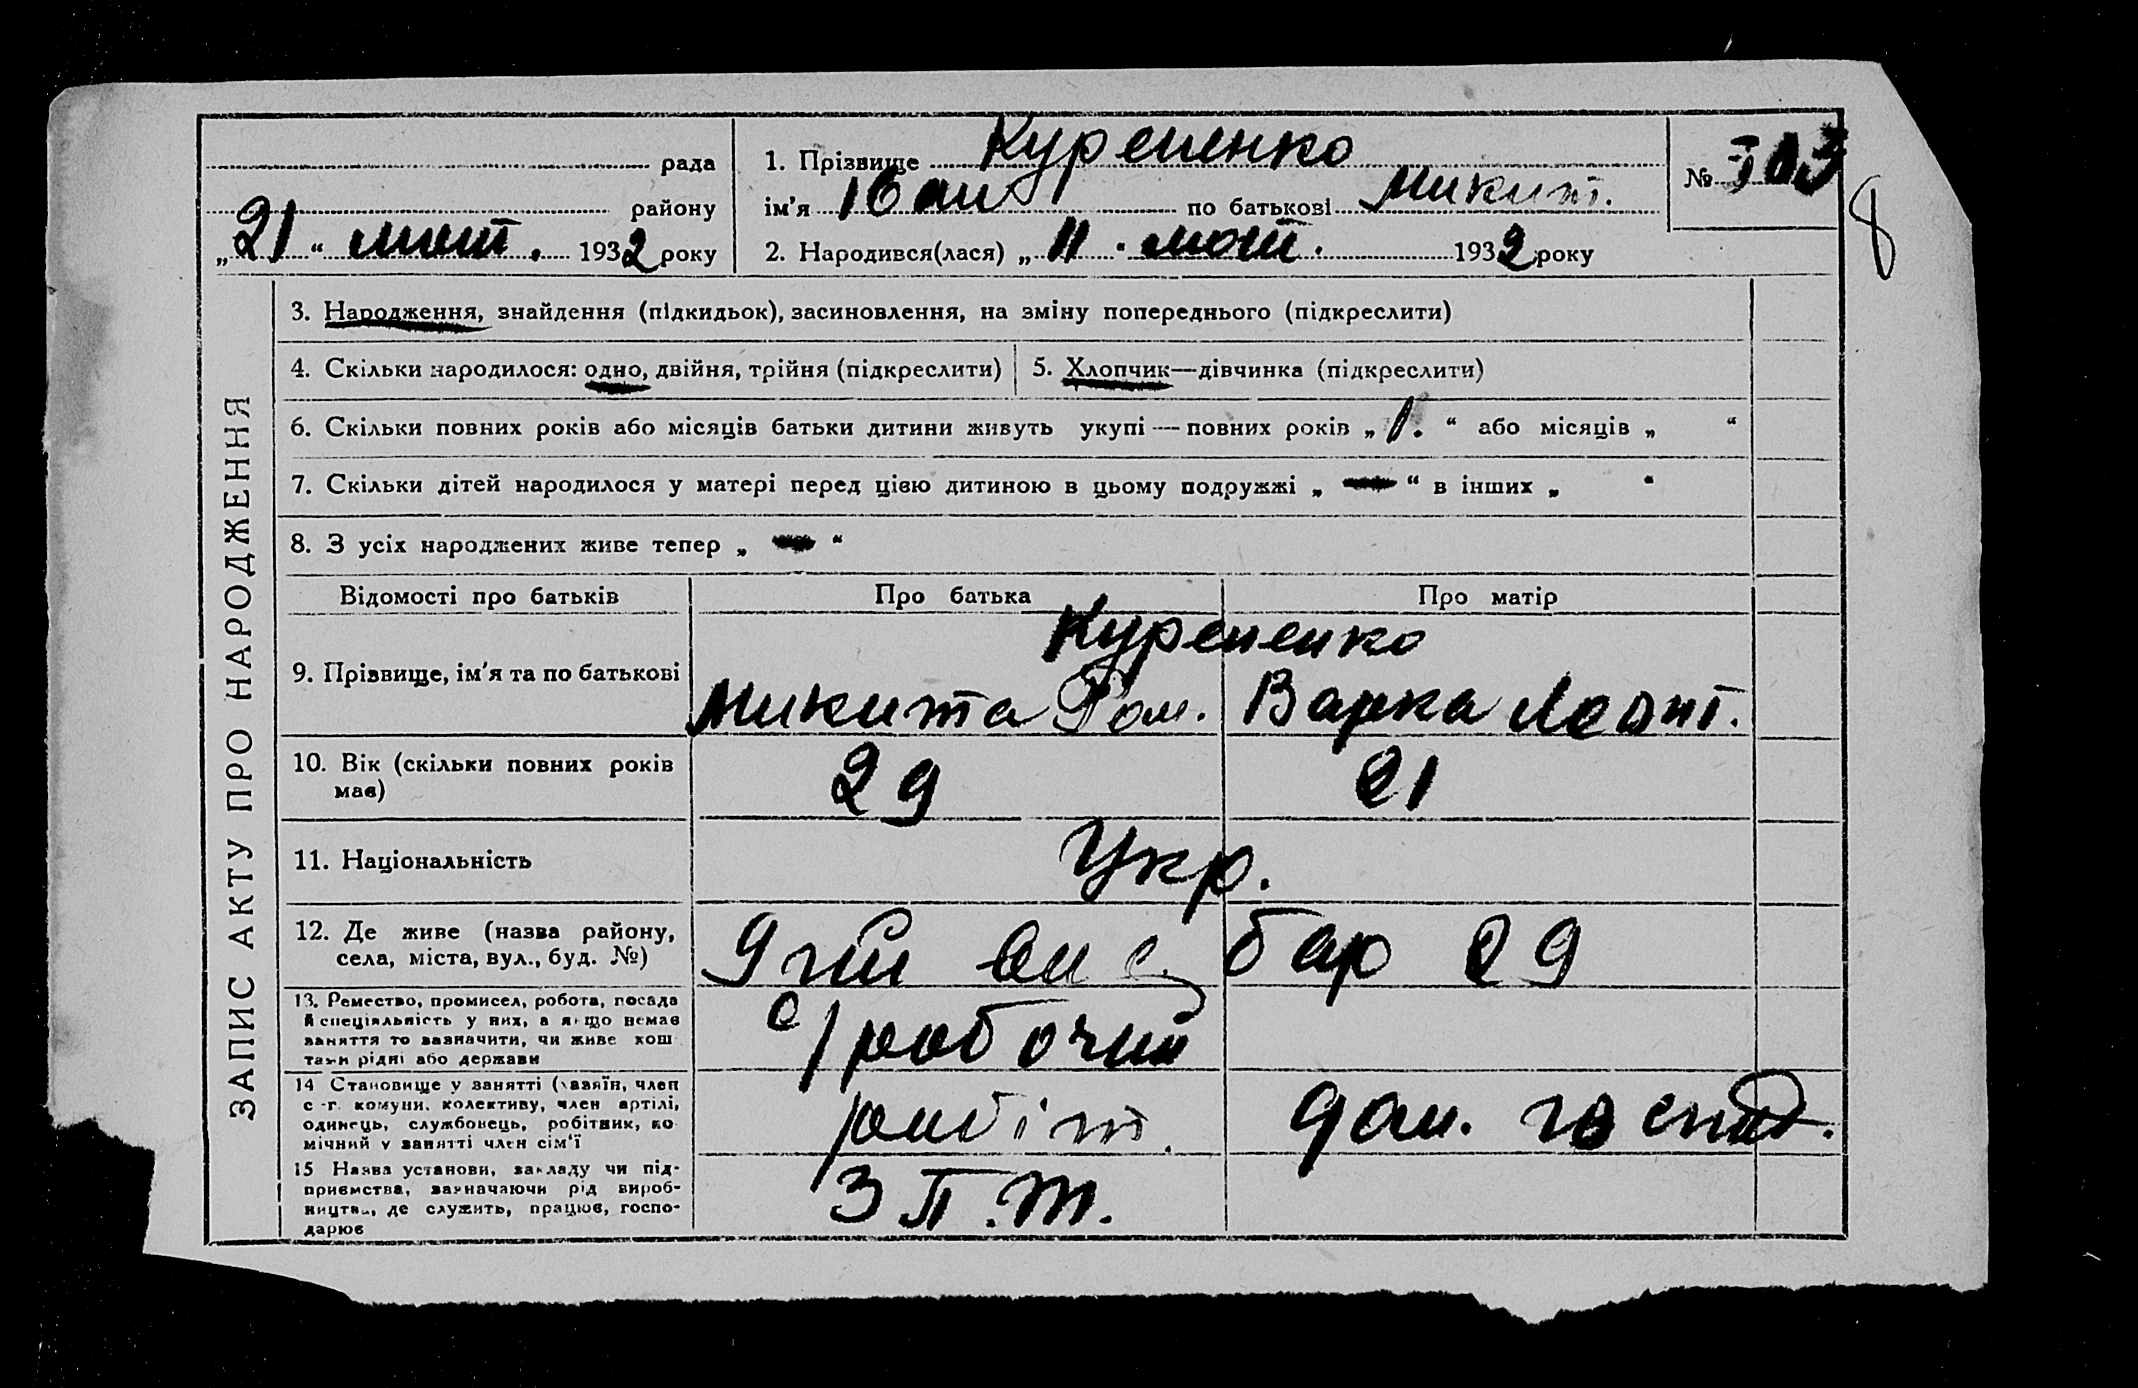 рада
1. Прізвище Курепенко
№
району
ім'я Іван по батькові Микит.
„21“ лют. 1932 року
2. Народився(лася) „11. лют. 1932 року
8
ЗАПИС АКТУ ПРО НАРОДЖЕННЯ
3. Народження, знайдення (підкидьок), засиновлення, на зміну попереднього (підкреслити)
4. Скільки народилося: одно, двійня, трійня (підкреслити)
5. Хлопчик—дівчинка (підкреслити)
6. Скільки повних років або місяців батьки дитини живуть укупі — повних років „ 1. “ або місяців „ “
7. Скільки дітей народилося у матері перед цією дитиною в цьому подружжі „ — “ в інших „ “
8. З усіх народжених живе тепер „ — “
Відомості про батьків
Про батька
Про матір
9. Прізвище, ім'я та по батькові
Курепенко
Микита Ром.
Варка Леонт.
10. Вік (скільки повних років
має)
29
21
11. Національність
Укр.
12. Де живе (назва району,
села, міста, вул., буд. №)
бар 29
13. Ремество, промисел, робота, посада
й спеціяльність у них, а якщо немає
заняття то зазначити, чи живе кош
тами рідні або держави
с/робочий
14 Становище у занятті (хазяїн, член
с-г. комуни, колективу, член артілі,
одинець, службовець, робітник, по
мічний у занятті член сім'ї
робіт.
дом. госпд.
15 Назва установи, закладу чи під-
приємства, зазначаючи рід вироб-
ництва, де служить, працює, госпо-
дарює
З П. Т.